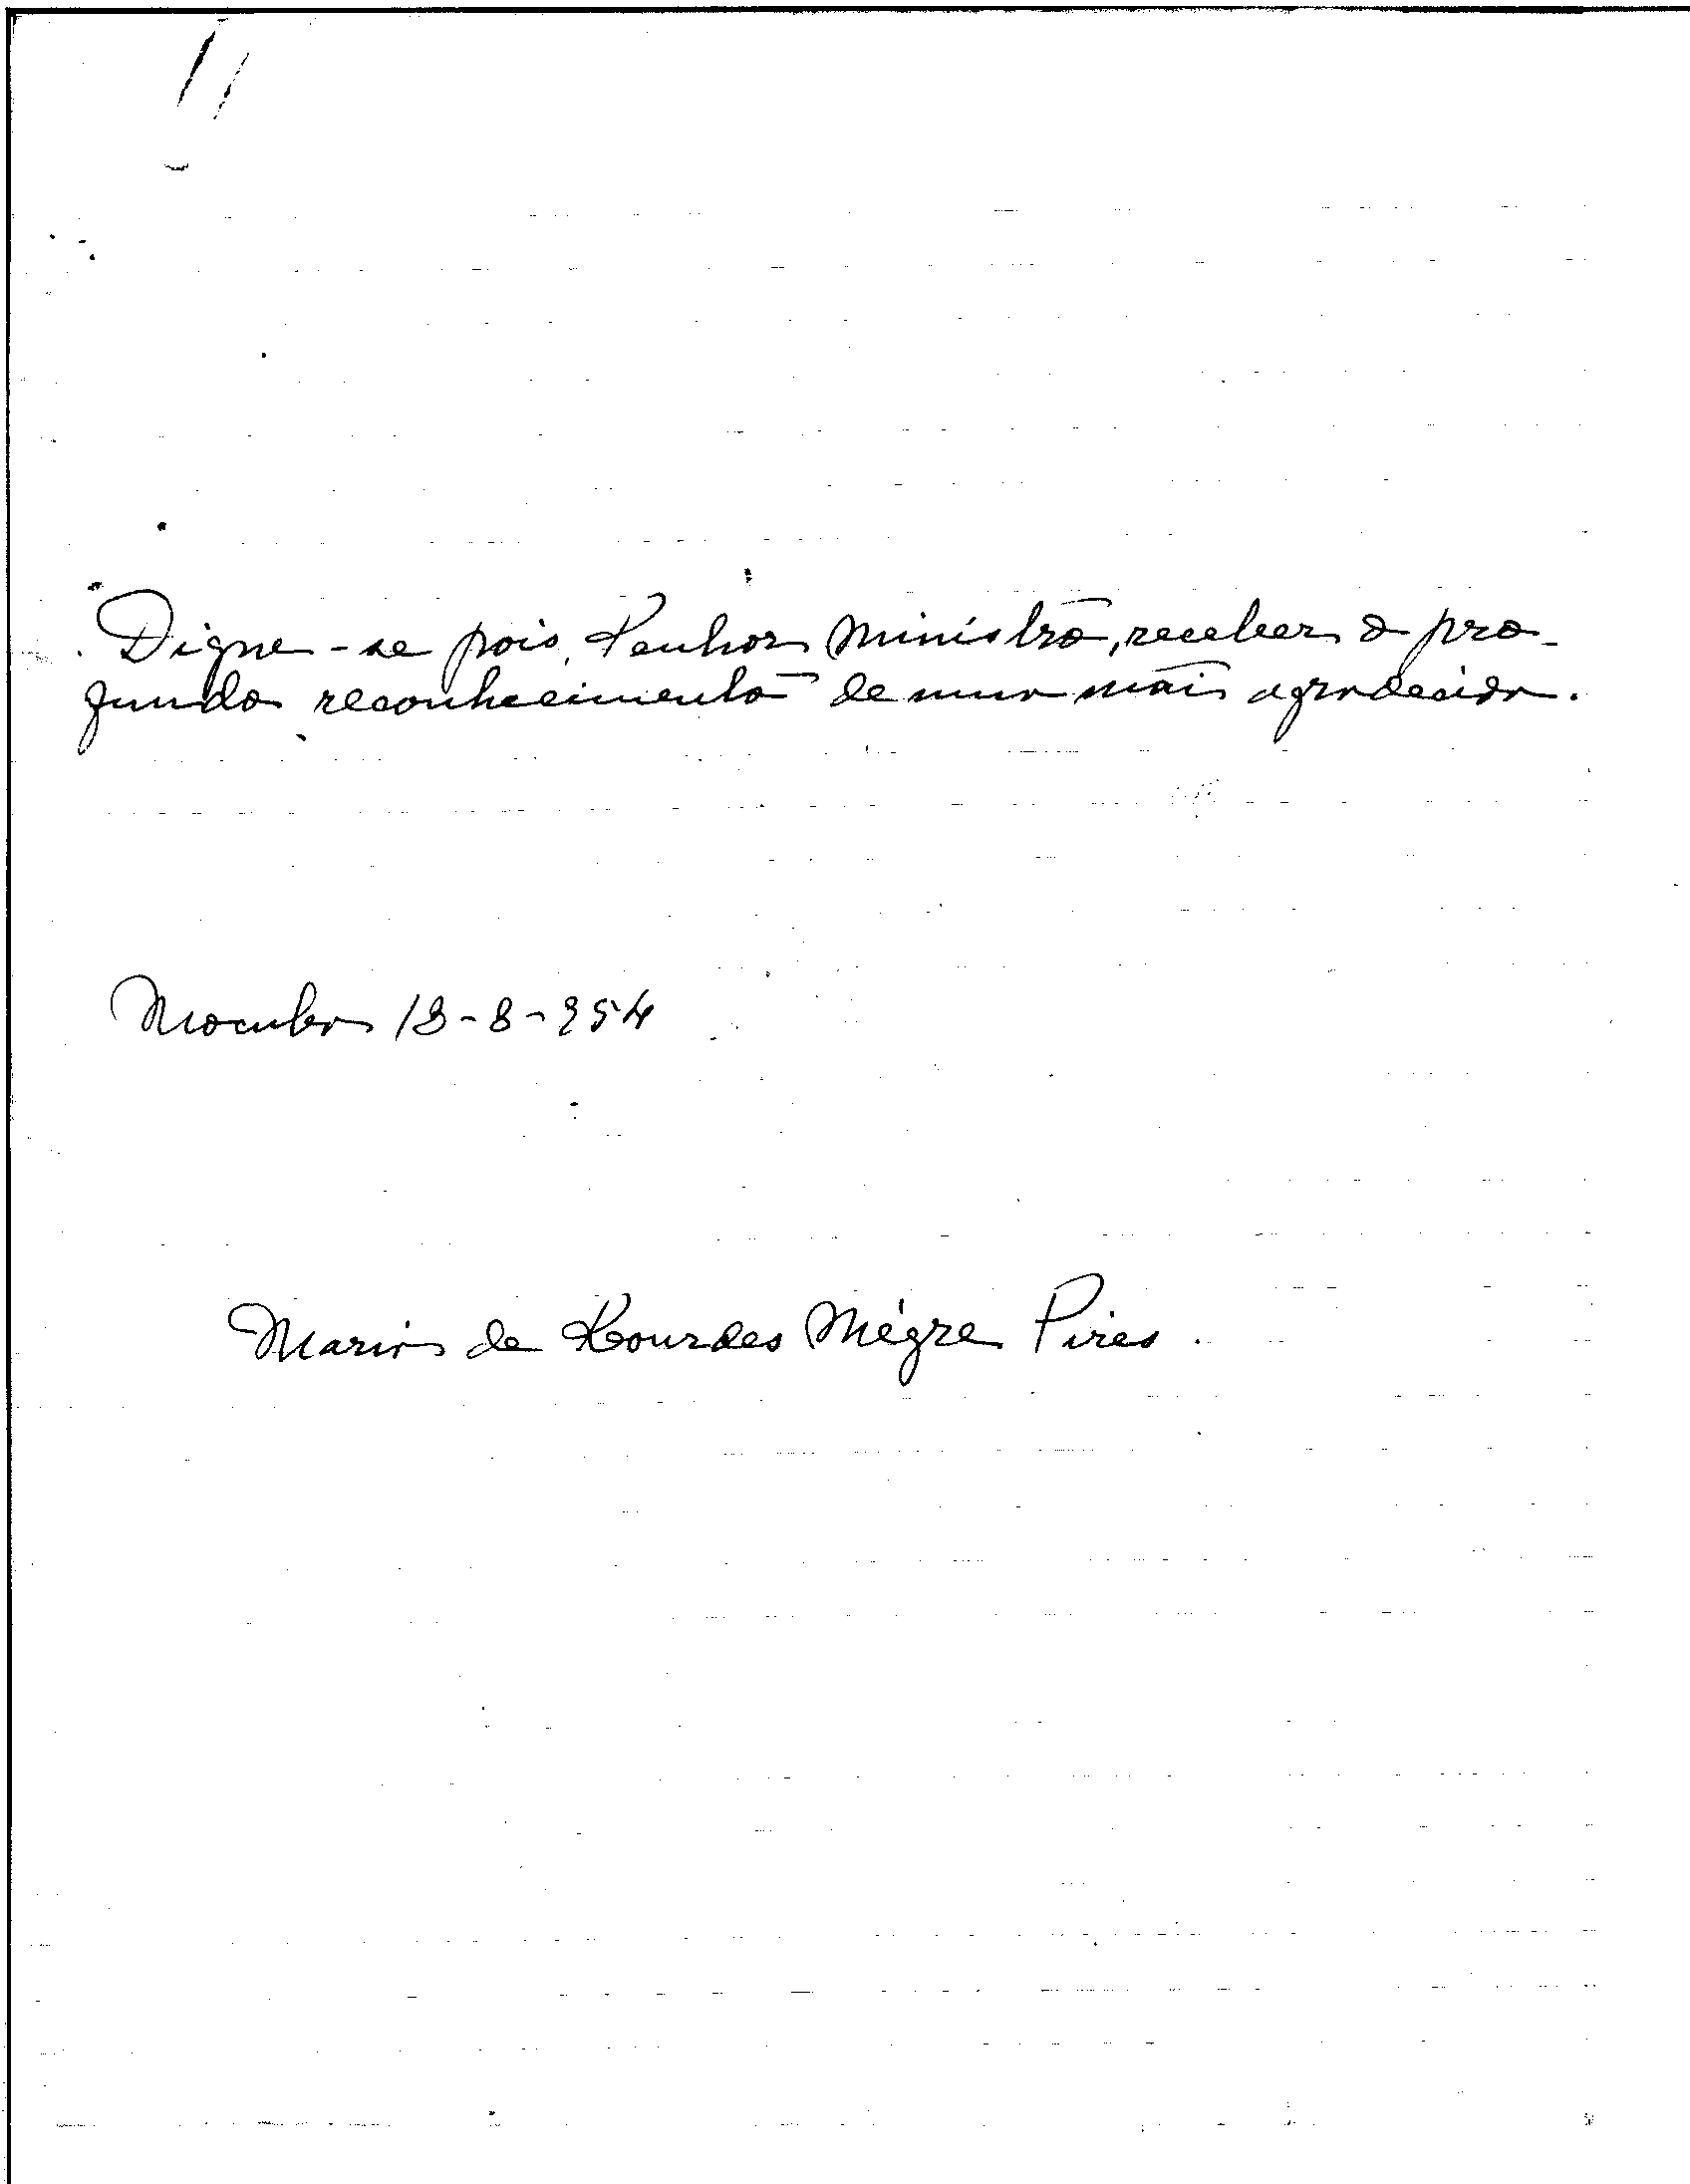 Digne-se pois, Senhor Ministro, receber o pro-
fundo reconhecimento de uma mãi agradecida.
Mocuba 13-8-954
Maria de Lourdes Mégre Pires.